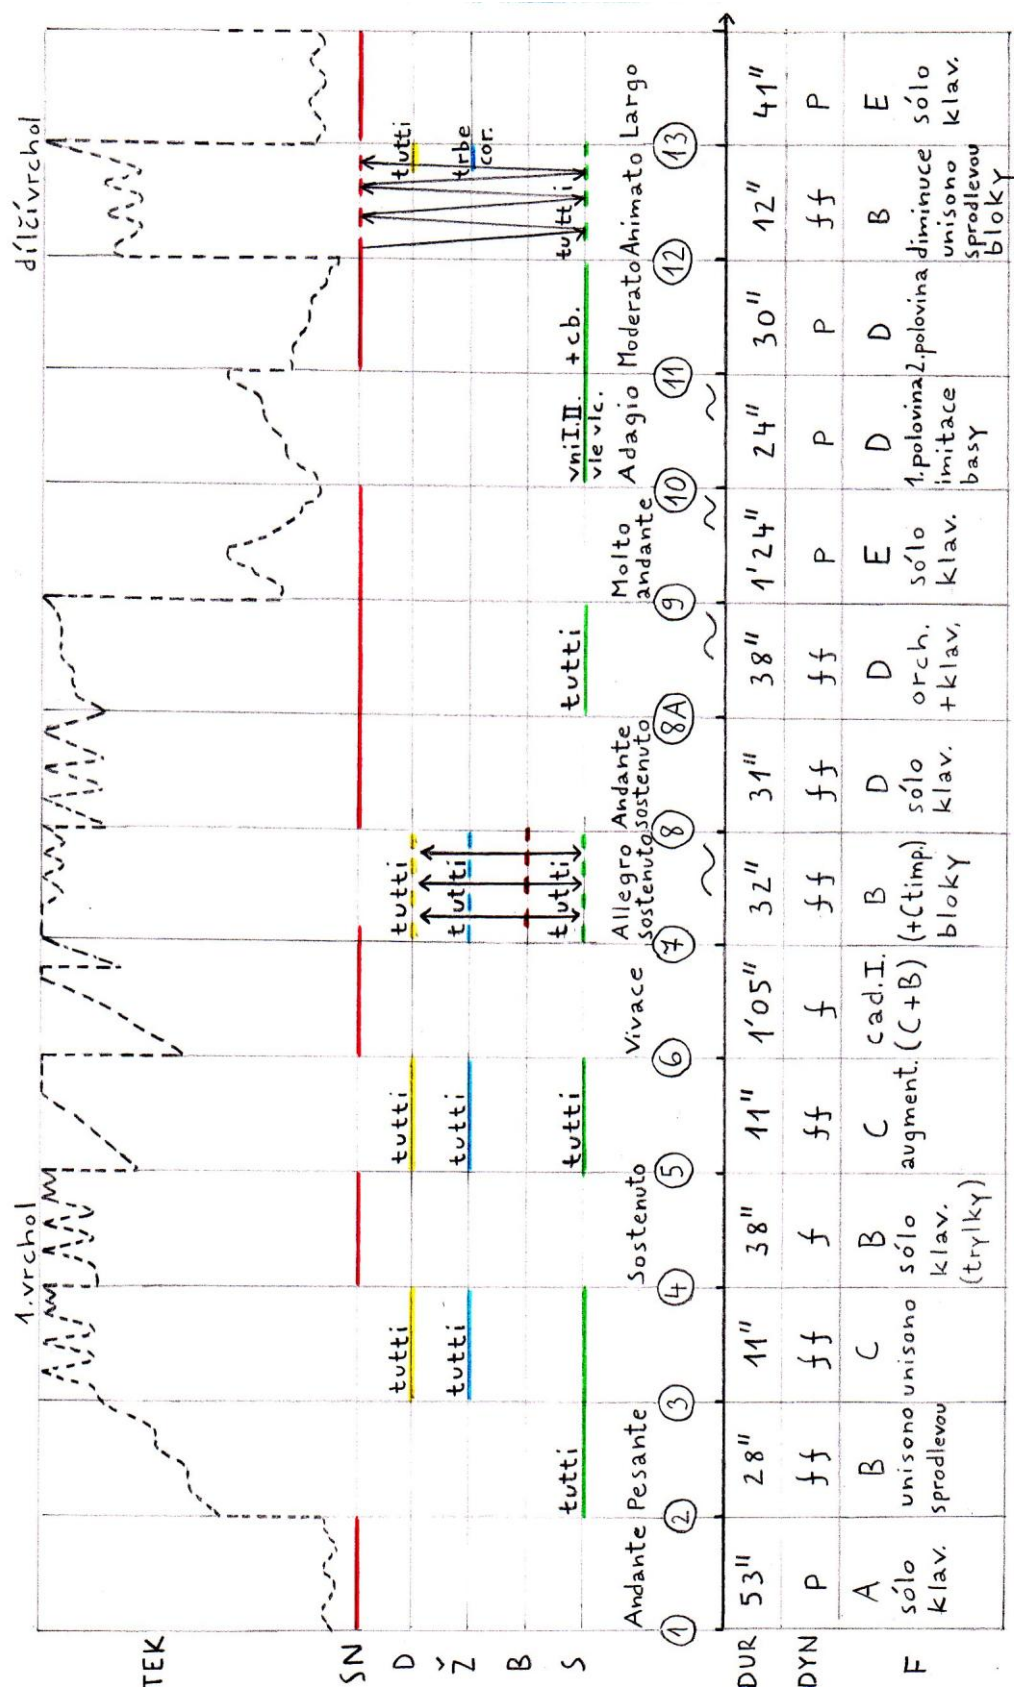 1. vrchol
dílčí vrchol
TEK
SN
D
tutti
tutti
tutti
tutti
Ž
tutti
tutti
tutti
trbe
cor.
B
S
tutti
tutti
tutti
tutti
vni I.II.
vle vlc.
+cb.
tutti
Andante
Pesante
Sostenuto
Vivace
Allegro
sostenuto
Andante
sostenuto
Molto
andante
Adagio
Moderato
Animato
Largo
1
2
3
4
5
6
7
8
8A
9
10
11
12
13
DUR
53"
28"
11"
38"
11"
1'05"
32"
31"
38"
1'24"
24"
30"
12"
41"
DYN
p
ff
ff
f
ff
f
ff
ff
ff
p
p
p
ff
p
F
A
sólo
klav.
B
unisono
sprodlevou
C
unisono
B
sólo
klav.
(trylky)
C
augment.
cad. I.
(C+B)
(+(timp.)
B
bloky
D
sólo
klav.
D
orch.
+klav.
E
sólo
klav.
D
1. polovina
imitace
basy
D
2. polovina
B
diminuce
unisono
sprodlevou
bloky
E
sólo
klav.